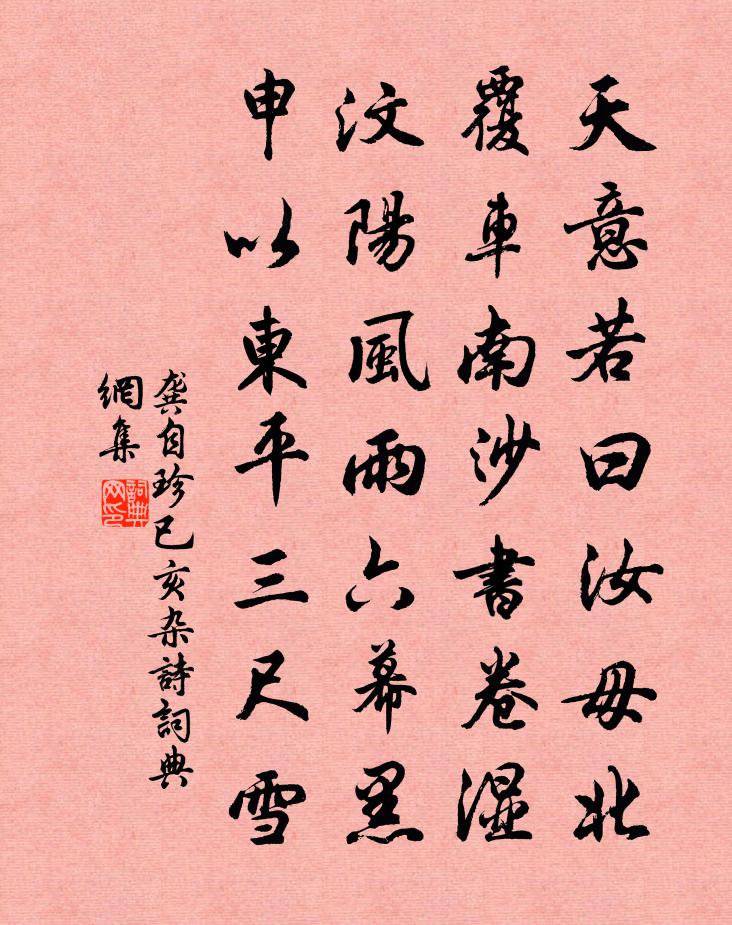 天意若曰汝毋北
覆車南沙書卷濕
汶陽風雨六幕黑
申以東平三尺雪
龔自珍己亥杂詩詞典
網集
詞典
网印